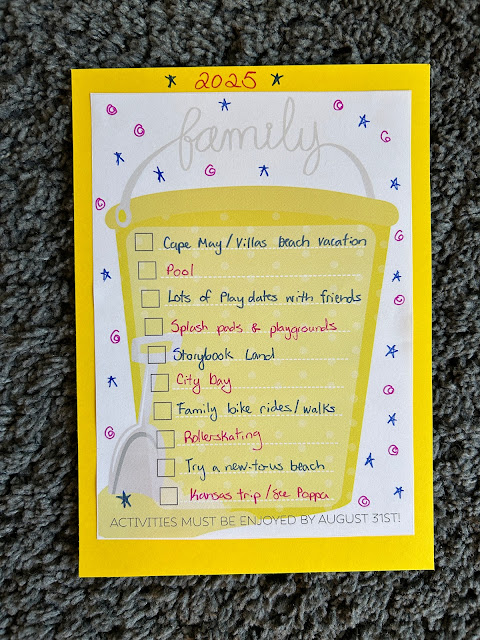 2025
family
Cape May/Villas beach vacation
Pool
Lots of Playdates with friends
Splash pads & playgrounds
Storybook Land
City Day
Family bike rides/walks
Rollerskating
Try a new-to-us beach
Kansas trip/See Poppa
ACTIVITIES MUST BE ENJOYED BY AUGUST 31ST!